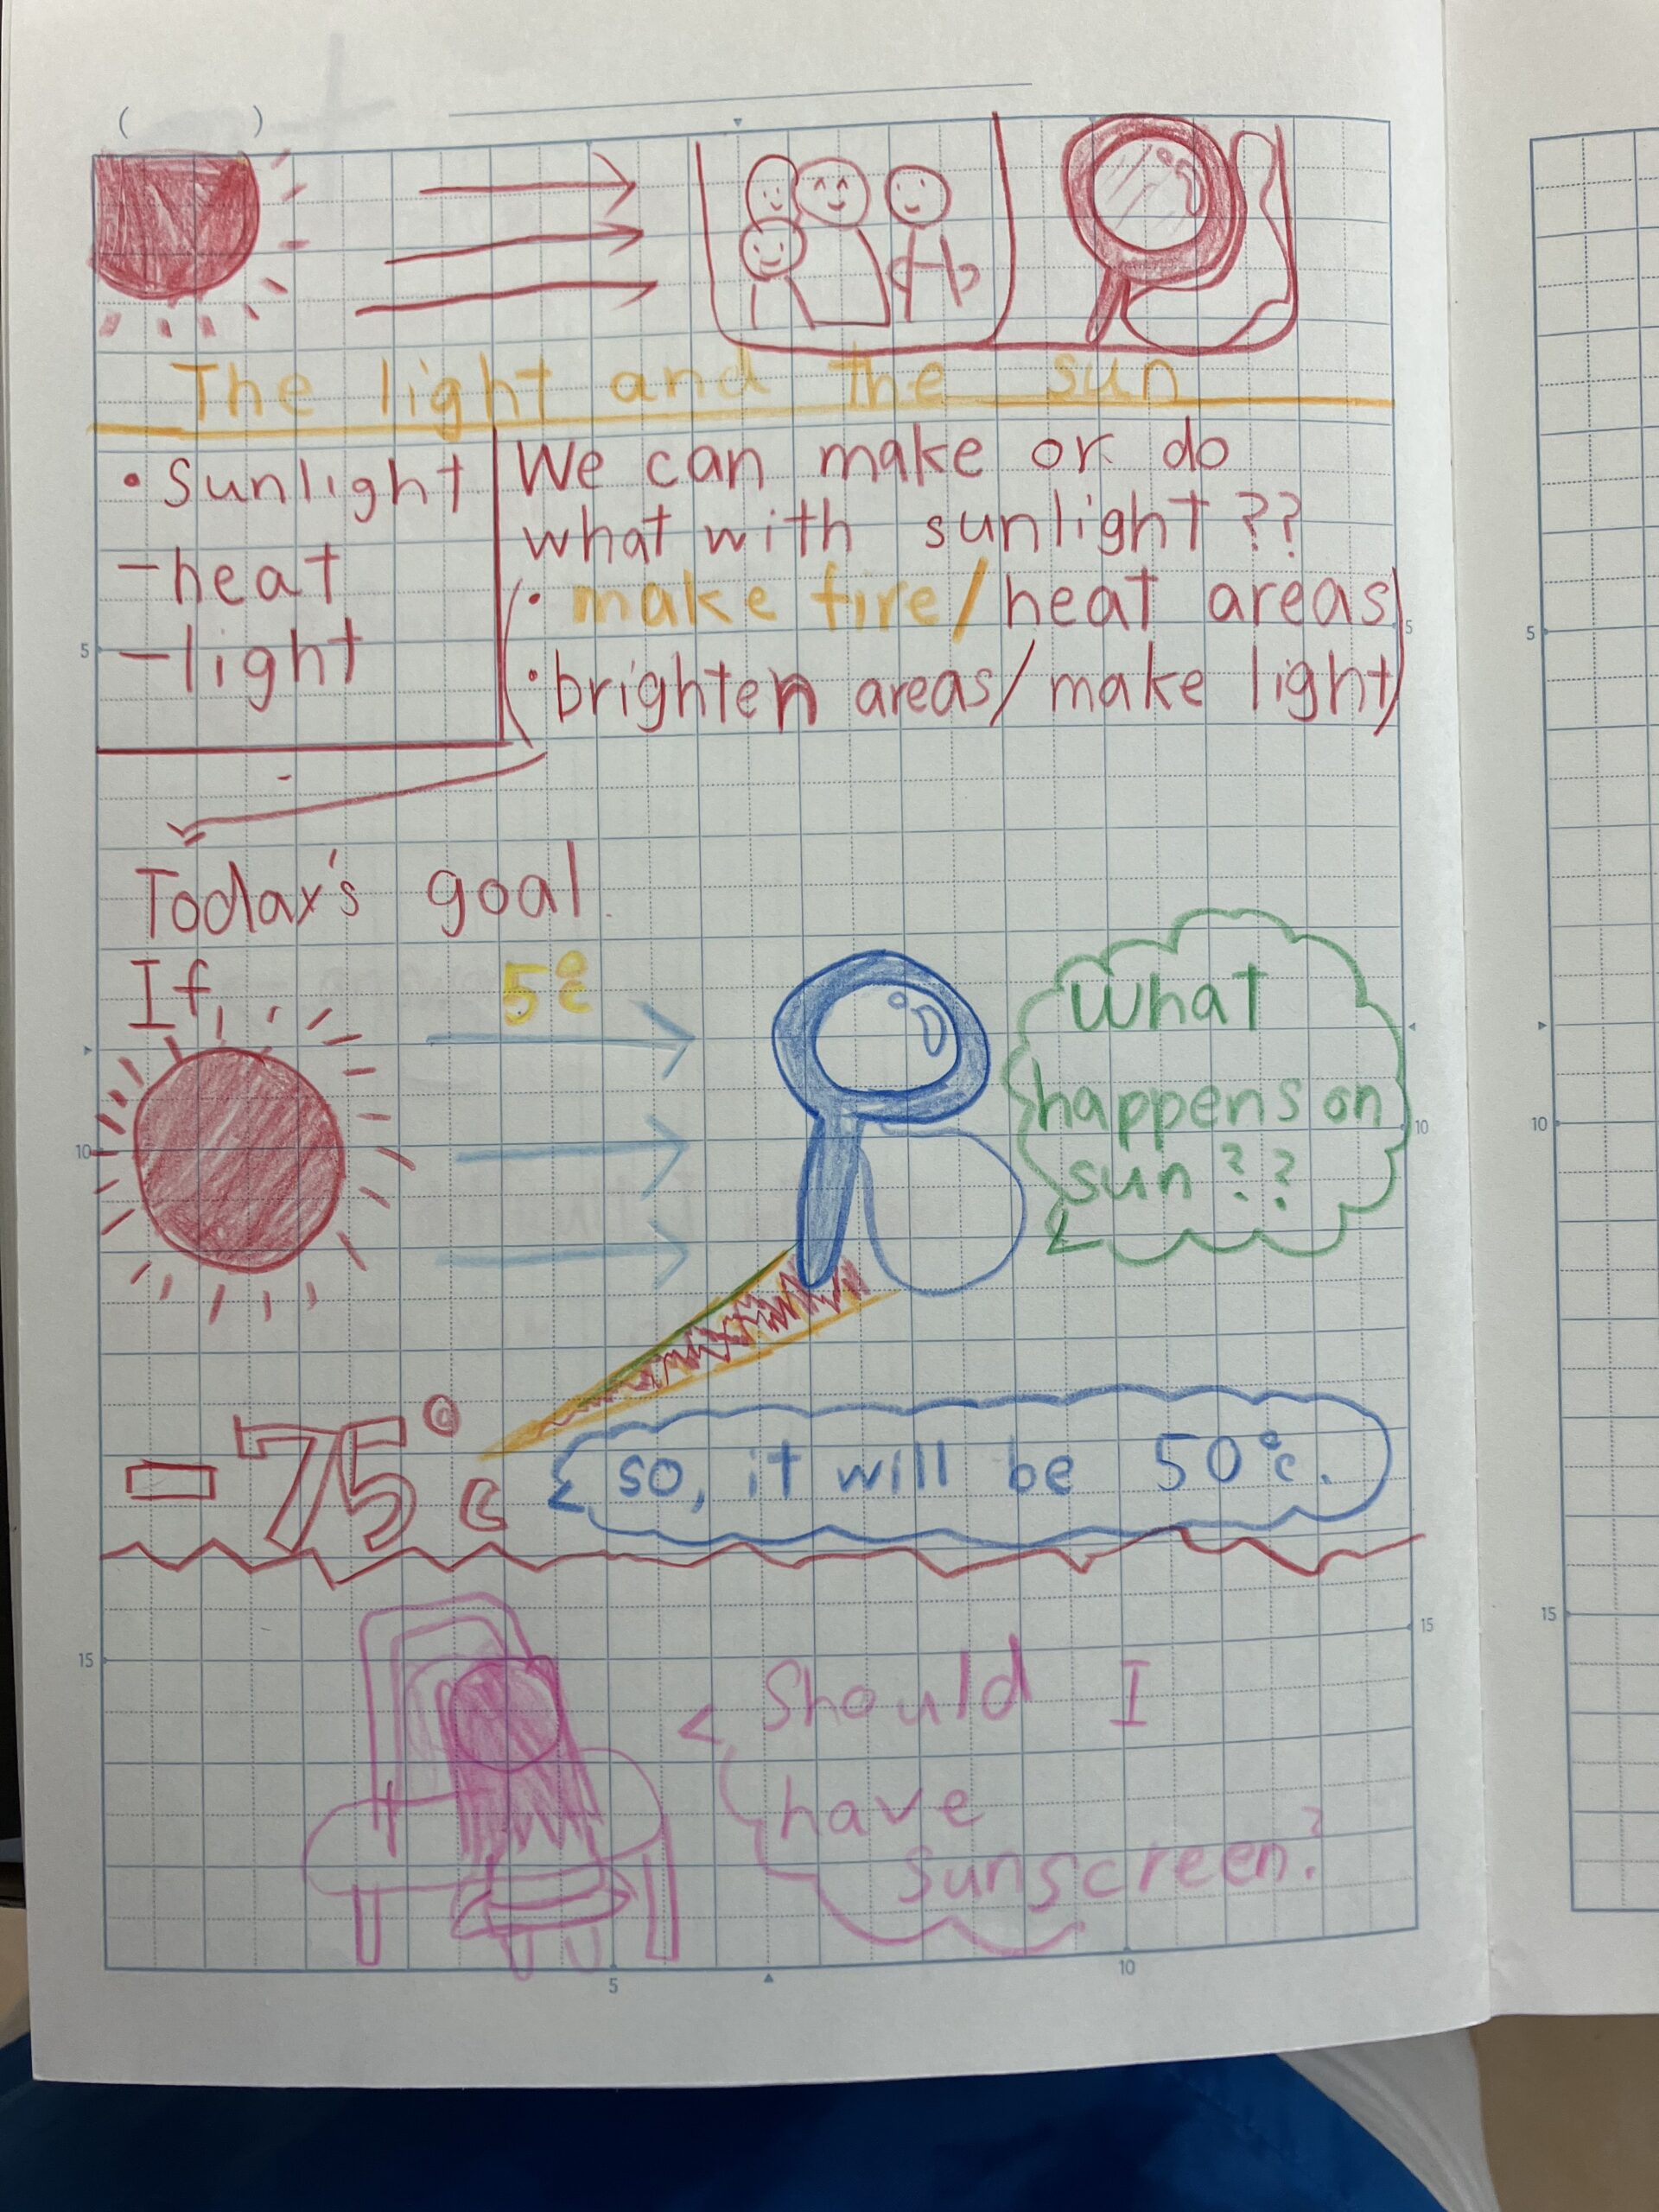 ( )
The light and the sun
• sunlight
- heat
- light
We can make or do
what with sunlight??
(• make fire/heat areas
• brighten areas/make light)
Today's goal.
If,
5℃
What
happens on
sun??
-75℃
so, it will be 50℃.
Should I
have
sunscreen?
5
10
15
5
10
15
5
10
5
10
15